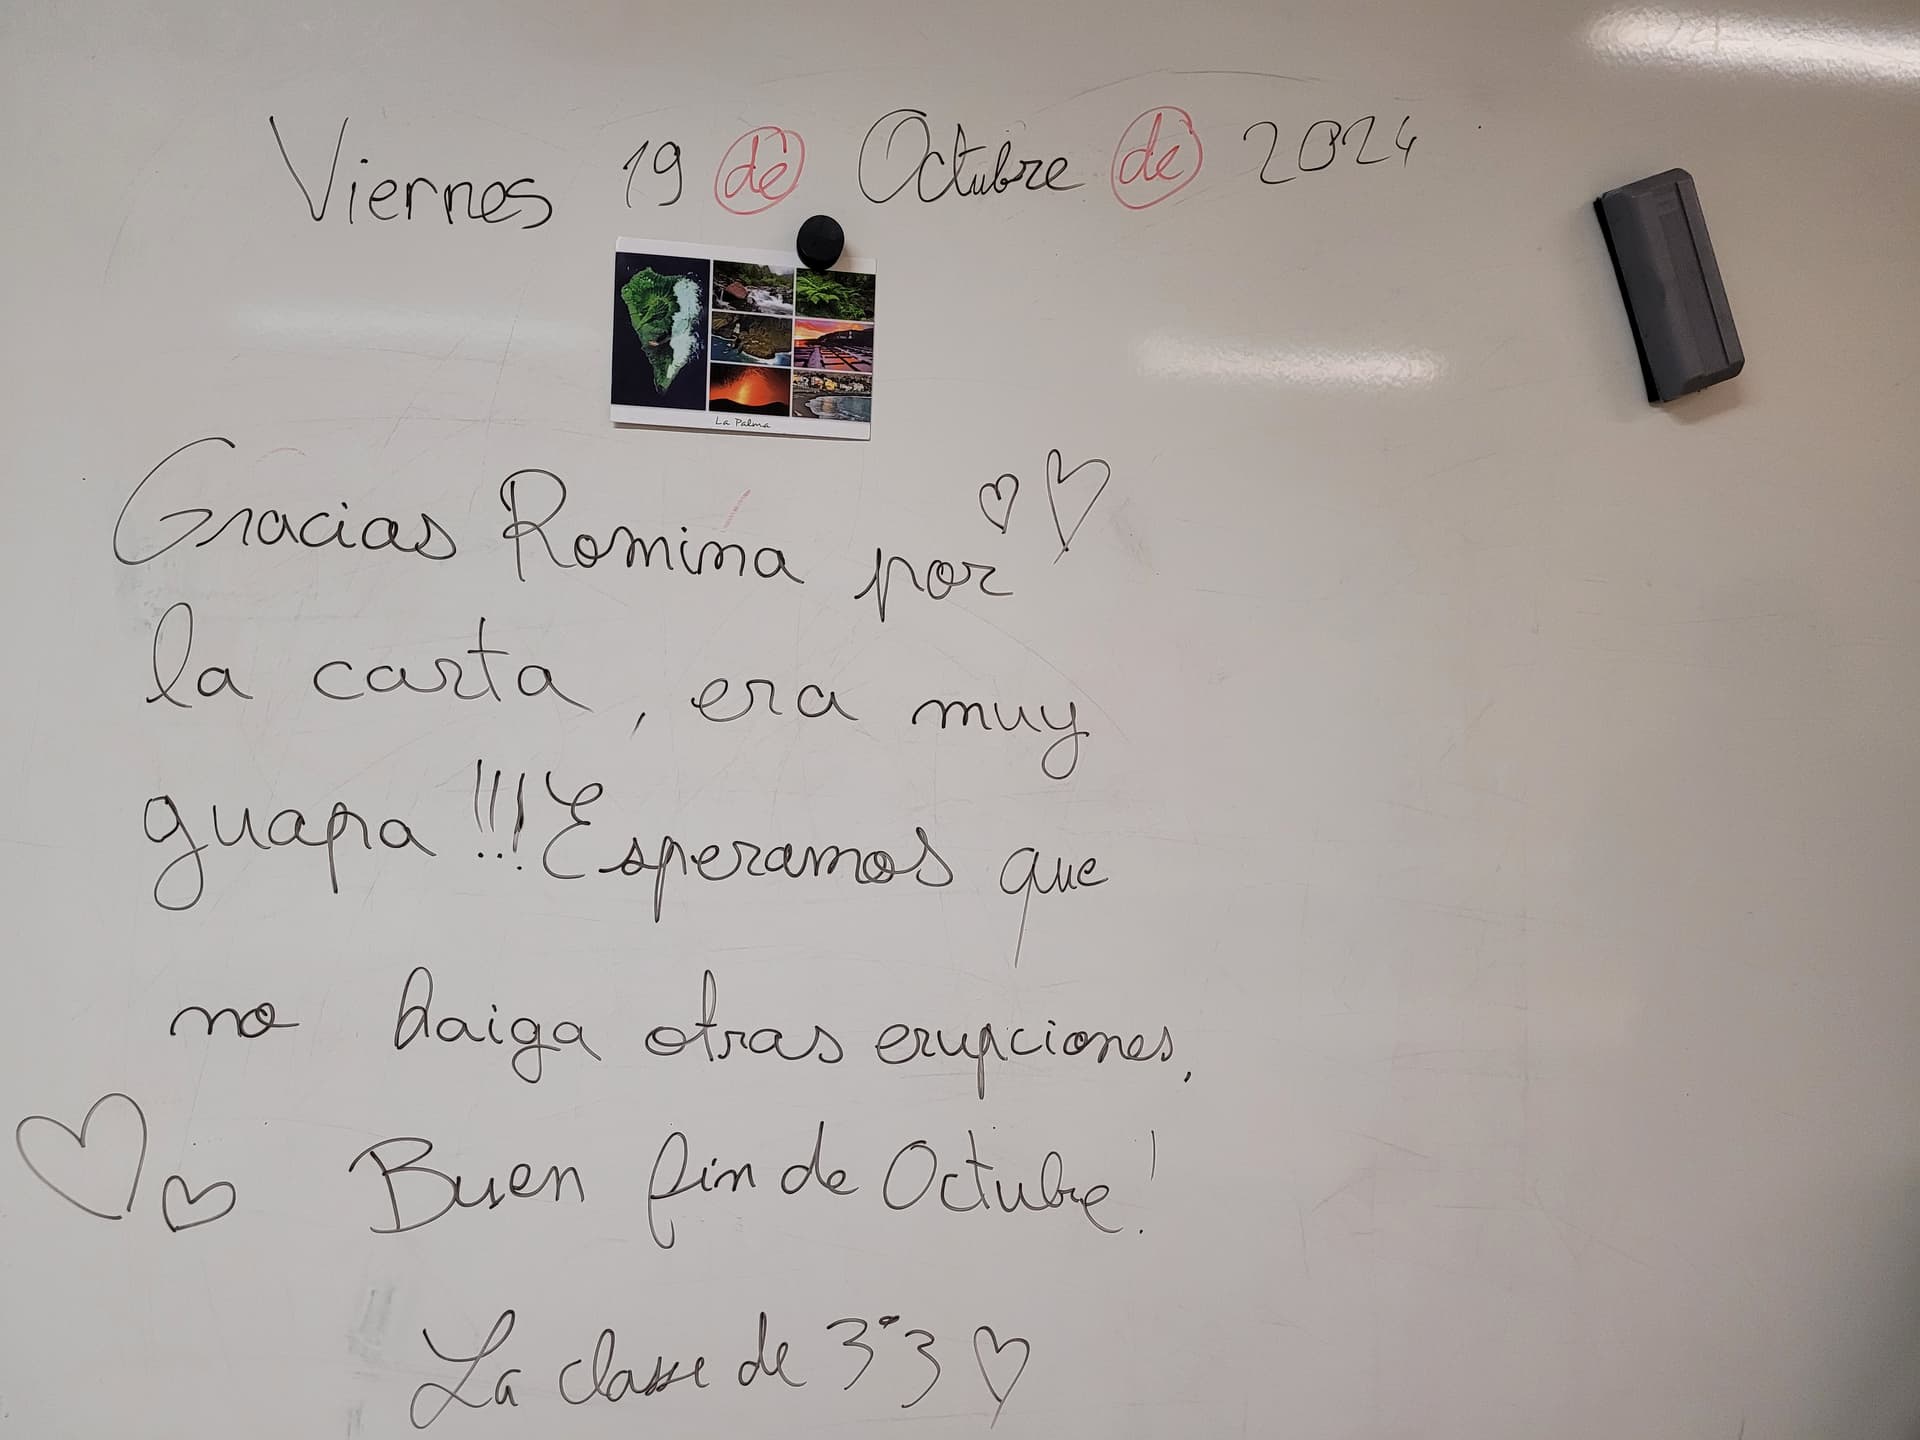 Viernes 19 de Octubre de 2024
La Palma
Gracias Romina por
la carta, era muy
guapa!!! Esperamos que
no haiga otras erupciones.
Buen fin de Octubre!
La classe de 3°3